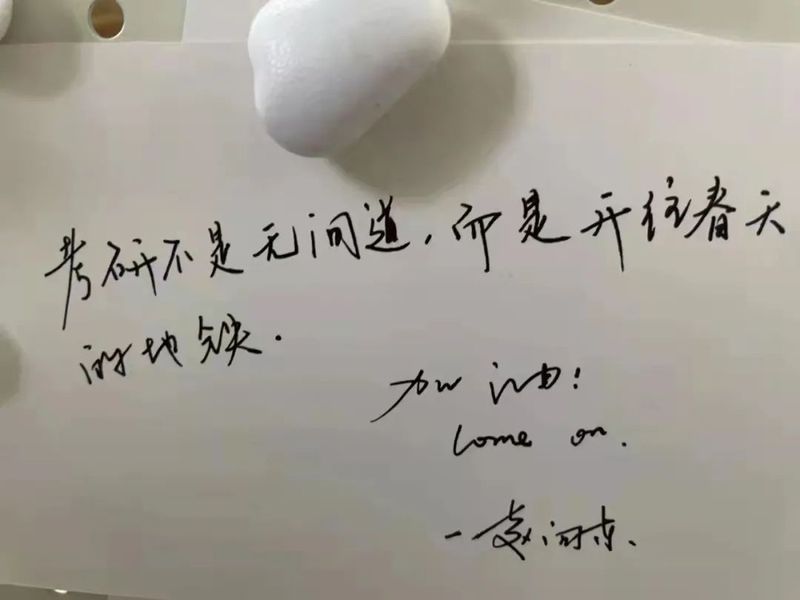 考研不是无间道，而是开往春天
的地铁.
加油!
Come on.